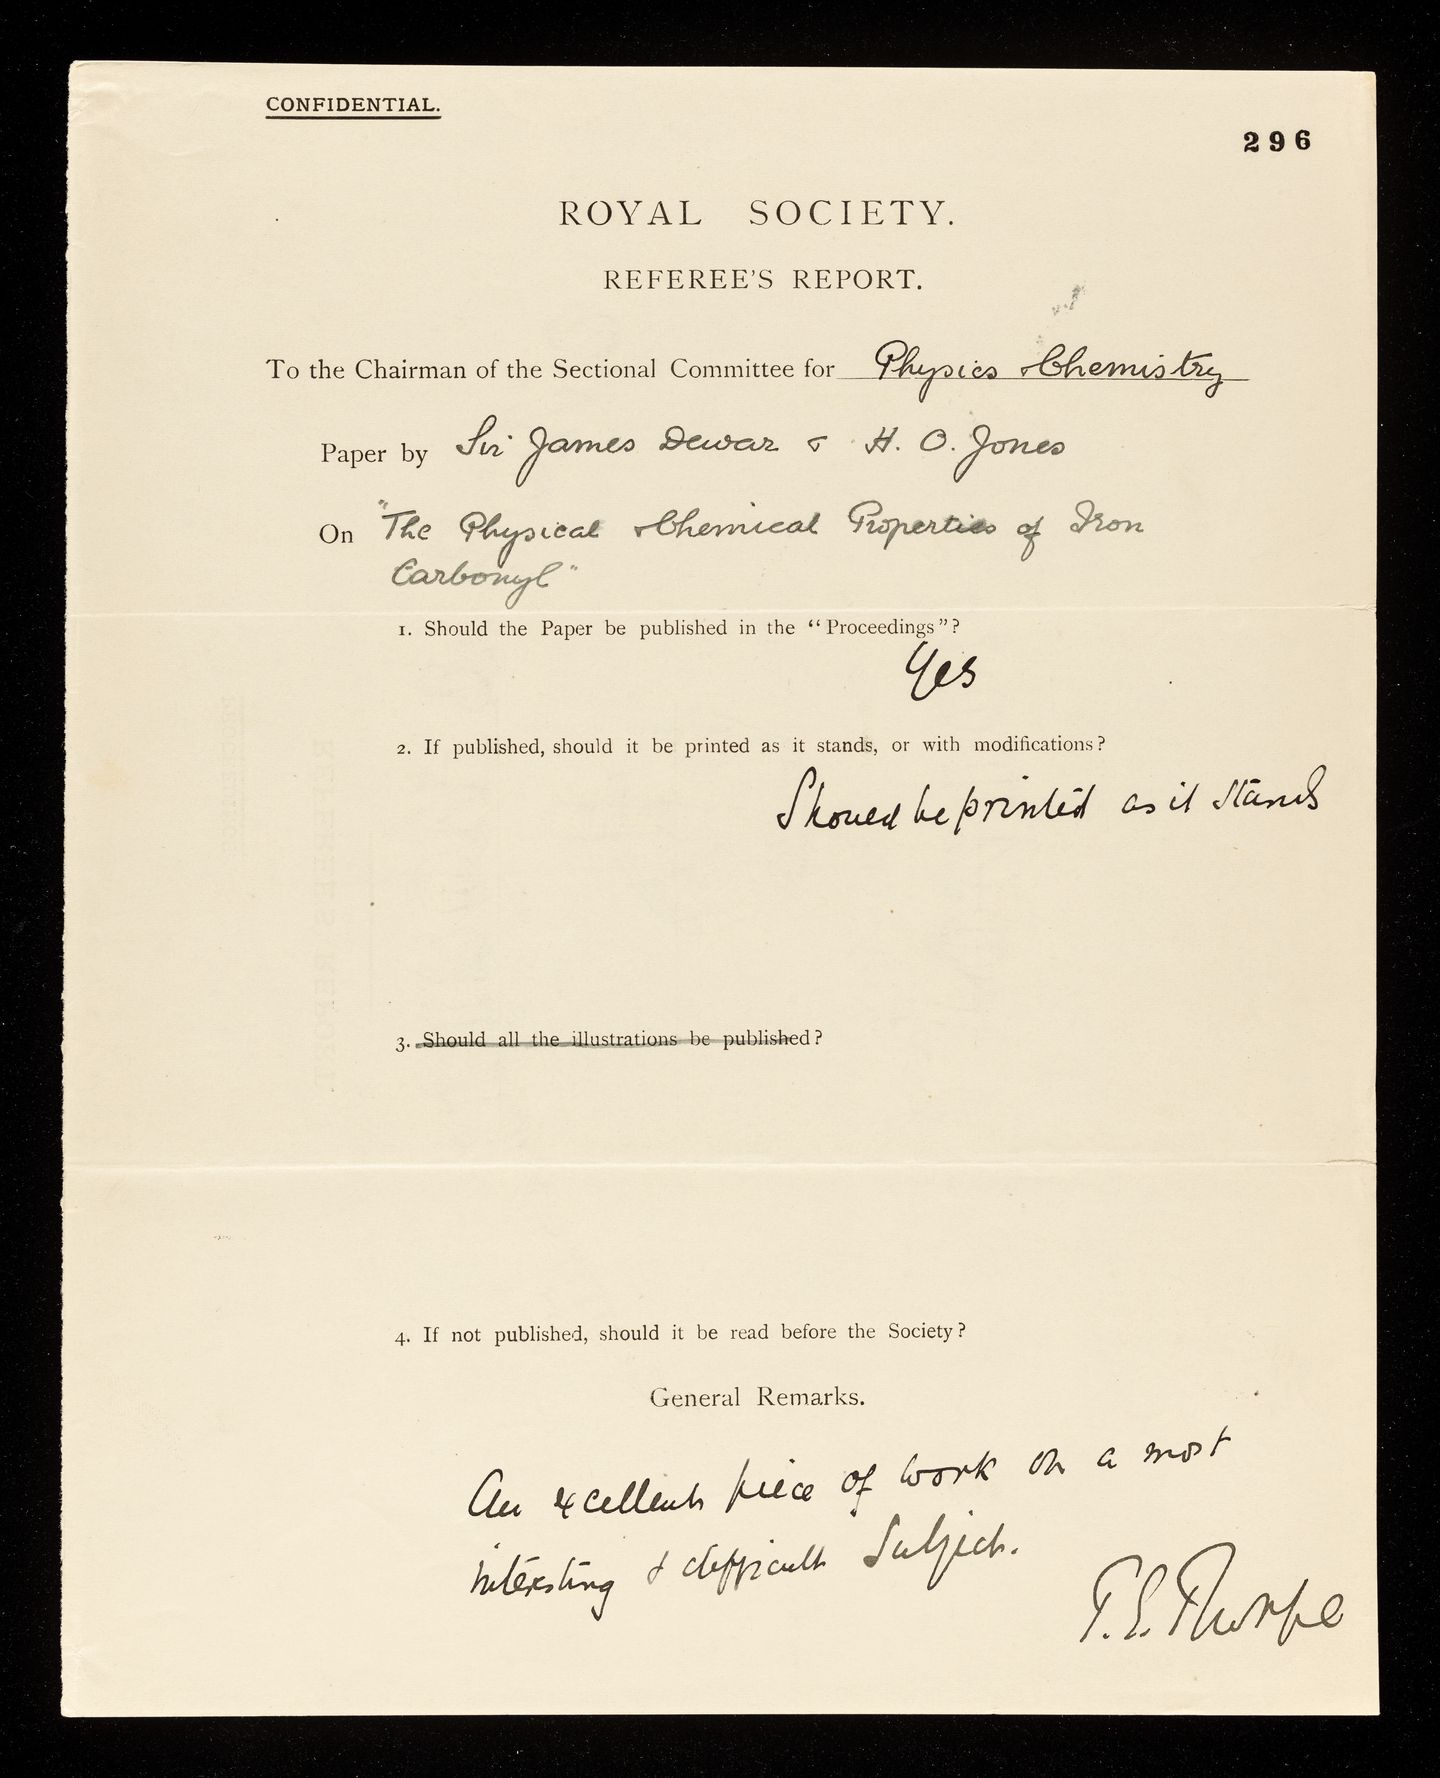 CONFIDENTIAL.
296
ROYAL SOCIETY.
REFEREE'S REPORT.
To the Chairman of the Sectional Committee for Physics & Chemistry
Paper by Sir James Dewar & H. O. Jones
On "The Physical & Chemical Properties of Iron
Carbonyl"
1. Should the Paper be published in the "Proceedings"?
Yes
2. If published, should it be printed as it stands, or with modifications?
Should be printed as it stands
3. Should all the illustrations be published?
4. If not published, should it be read before the Society?
General Remarks.
An excellent piece of work on a most
interesting & difficult subject.
T. E. Thorpe